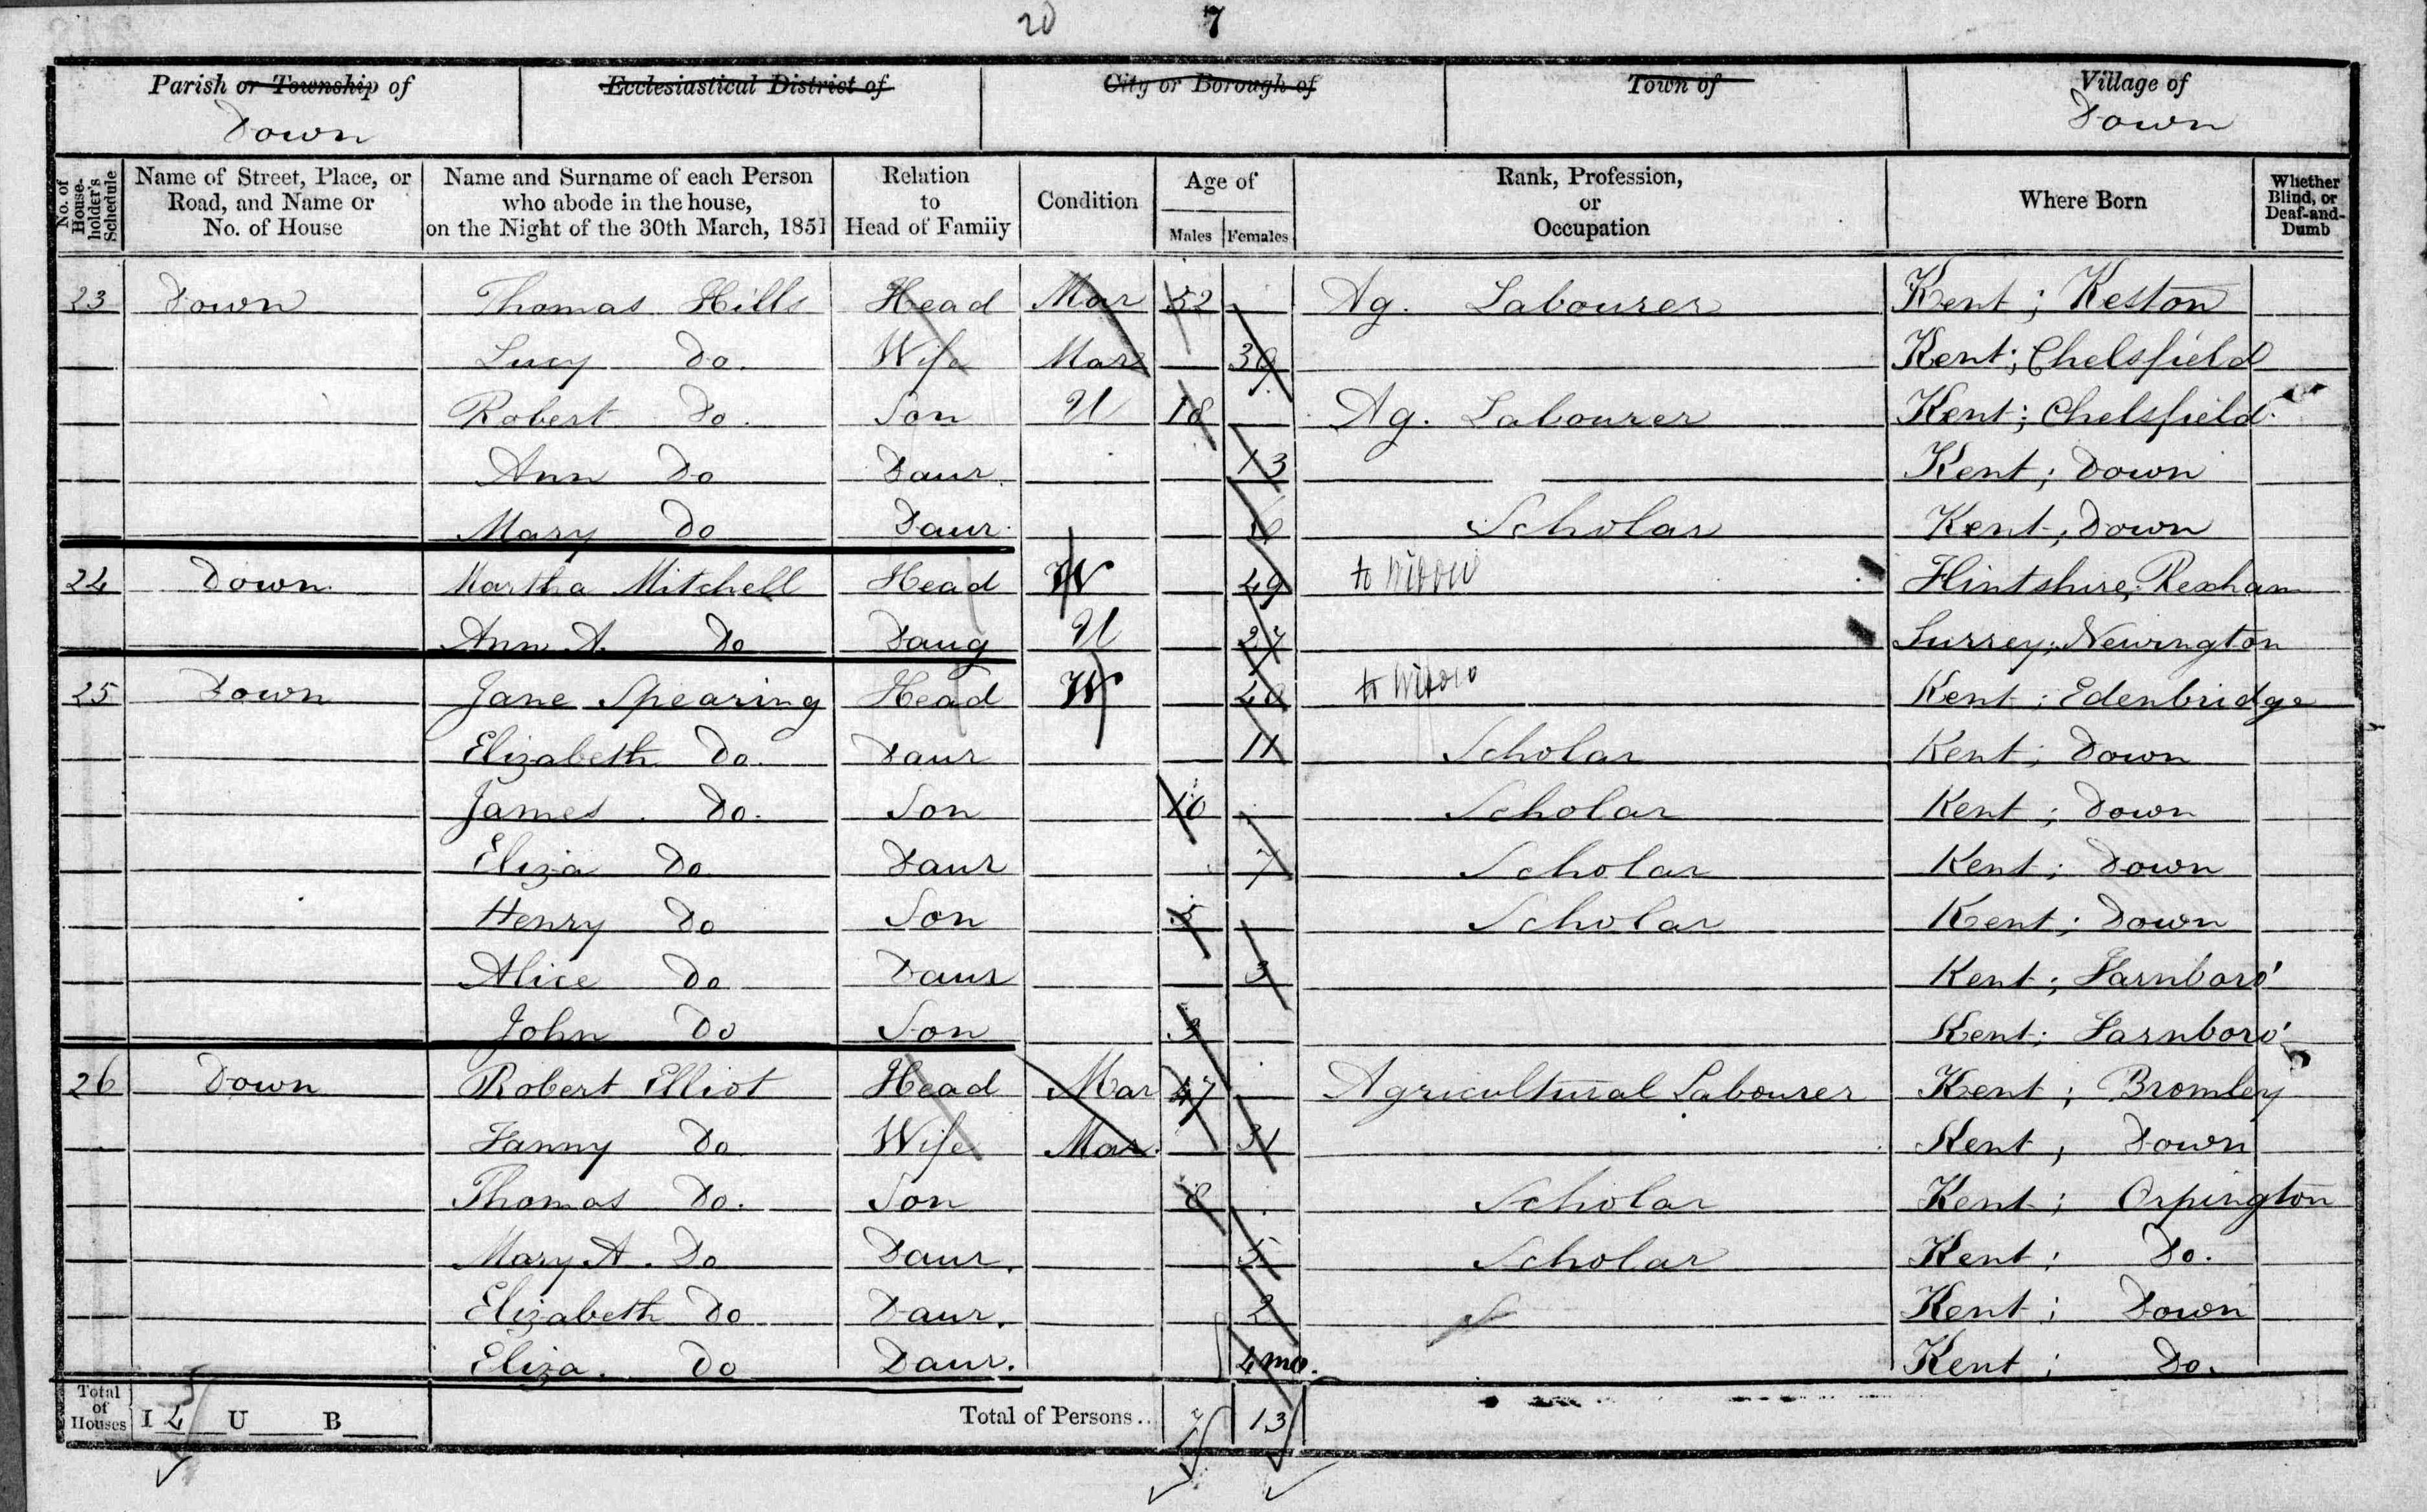 20 7
Parish or Township of Ecclesiastical District of City or Borough of Town of Village of
Down Down
No. of House-holder's Schedule Name of Street, Place, or Road, and Name or No. of House Name and Surname of each Person who abode in the house, on the Night of the 30th March, 1851 Relation to Head of Family Condition Age of Males Females Rank, Profession, or Occupation Where Born Whether Blind, or Deaf-and-Dumb
23 Down Thomas Hills Head Mar 52 Ag. Labourer Kent; Keston
Lucy Do. Wife Mar 39 Kent; Chelsfield
Robert Do. Son U 18 Ag. Labourer Kent; Chelsfield.
Ann Do Daur. 13 Kent; Down
Mary Do Daur. Scholar Kent; Down
24 Down. Martha Mitchell Head W 49 Flintshire; Rexham
Ann A. Do Daug U 27 Surrey; Newington
25 Down Jane Spearing Head W 48 Kent; Edenbridge
Elizabeth Do. Daur 11 Scholar Kent; Down
James. Do. Son 10 Scholar Kent; Down
Eliza Do Daur 7 Scholar Kent; Down
Henry Do Son 5 Scholar Kent; Down
Alice Do Daur 3 Kent; Farnboro'
John Do Son Kent; Farnboro'
26 Down Robert Elliot Head Mar 47 Agricultural Labourer Kent; Bromley
Fanny Do. Wife Mar. 31 Kent; Down
Thomas Do. Son 8 Scholar Kent; Orpington
Mary A. Do Daur. 5 Scholar Kent; Do.
Elizabeth Do Daur. 2 S Kent; Down
Eliza. Do Daur. 4 mo. Kent; Do.
Total of Houses I 4 U B Total of Persons.. 7 13